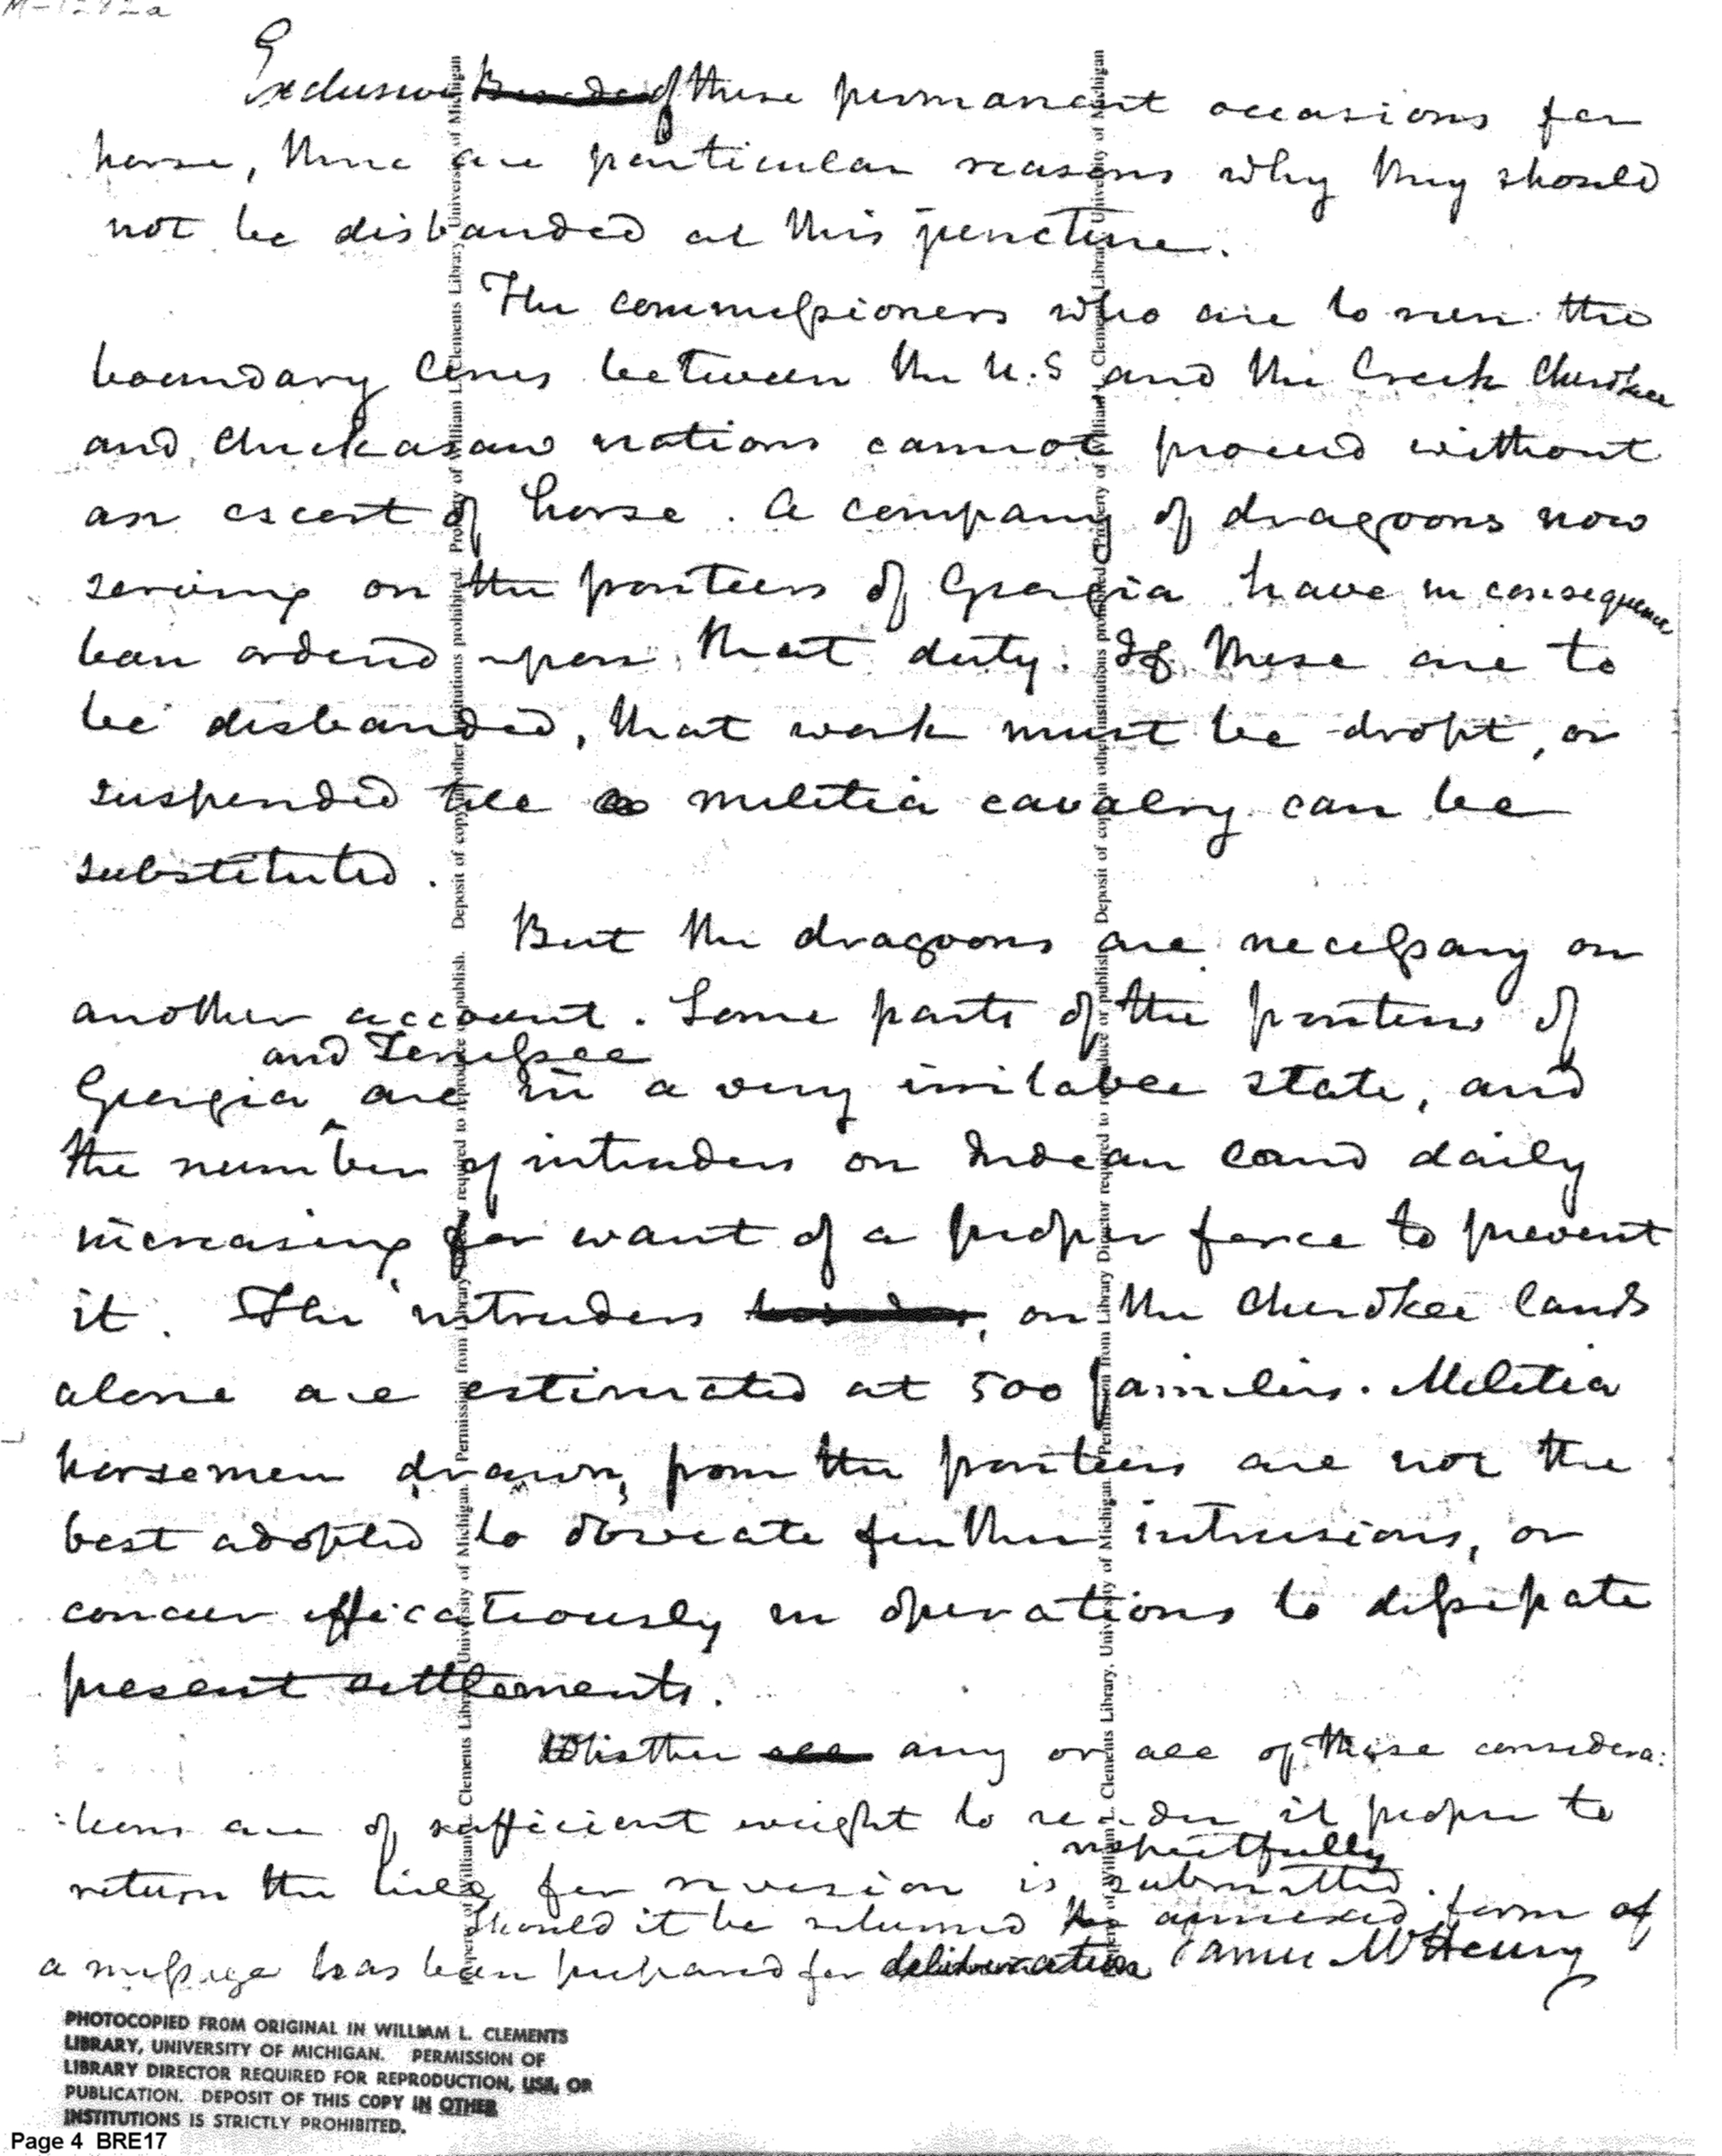 M-1292a
Exclusive Besides of these permanent occasions for
horse, there are particular reasons why they should
not be disbanded at this juncture.
The commissioners who are to run the
boundary lines between the U.S and the Creek Cherokee
and Chickasaw nations cannot proceed without
an escort of horse. A company of dragoons now
serving on the frontiers of Georgia have in consequence
been ordered upon that duty. If these are to
be disbanded, that work must be dropt, or
suspended till militia cavalry can be
substituted.
But the dragoons are necessary on
another account. Some parts of the frontiers of
and Tenessee
Georgia ^ are in a very irritable state, and
the number of intruders on Indian land daily
increasing for want of a proper force to prevent
it. The intruders , on the Cherokee lands
alone are estimated at 500 families. Militia
horsemen drawn, from the frontiers are not the
best adopted to obviate further intrusions, or
concur efficatiously in operations to dissipate
present settlements.
Whether all any or all of these considera:
:tions are of sufficient weight to render it proper to
respectfully
return the bill for revision is submitted.
Should it be returned the annexed form of
a message has been prepared for deliberation James McHenry
PHOTOCOPIED FROM ORIGINAL IN WILLIAM L. CLEMENTS
LIBRARY, UNIVERSITY OF MICHIGAN. PERMISSION OF
LIBRARY DIRECTOR REQUIRED FOR REPRODUCTION, USE, OR
PUBLICATION. DEPOSIT OF THIS COPY IN OTHER
INSTITUTIONS IS STRICTLY PROHIBITED.
Page 4 BRE17
Property of William L. Clements Library, University of Michigan. Permission from Library Director required to reproduce or publish. Deposit of copy in other institutions prohibited. Property of William L. Clements Library, University of Michigan
Property of William L. Clements Library, University of Michigan. Permission from Library Director required to reproduce or publish. Deposit of copy in other institutions prohibited. Property of William L. Clements Library, University of Michigan